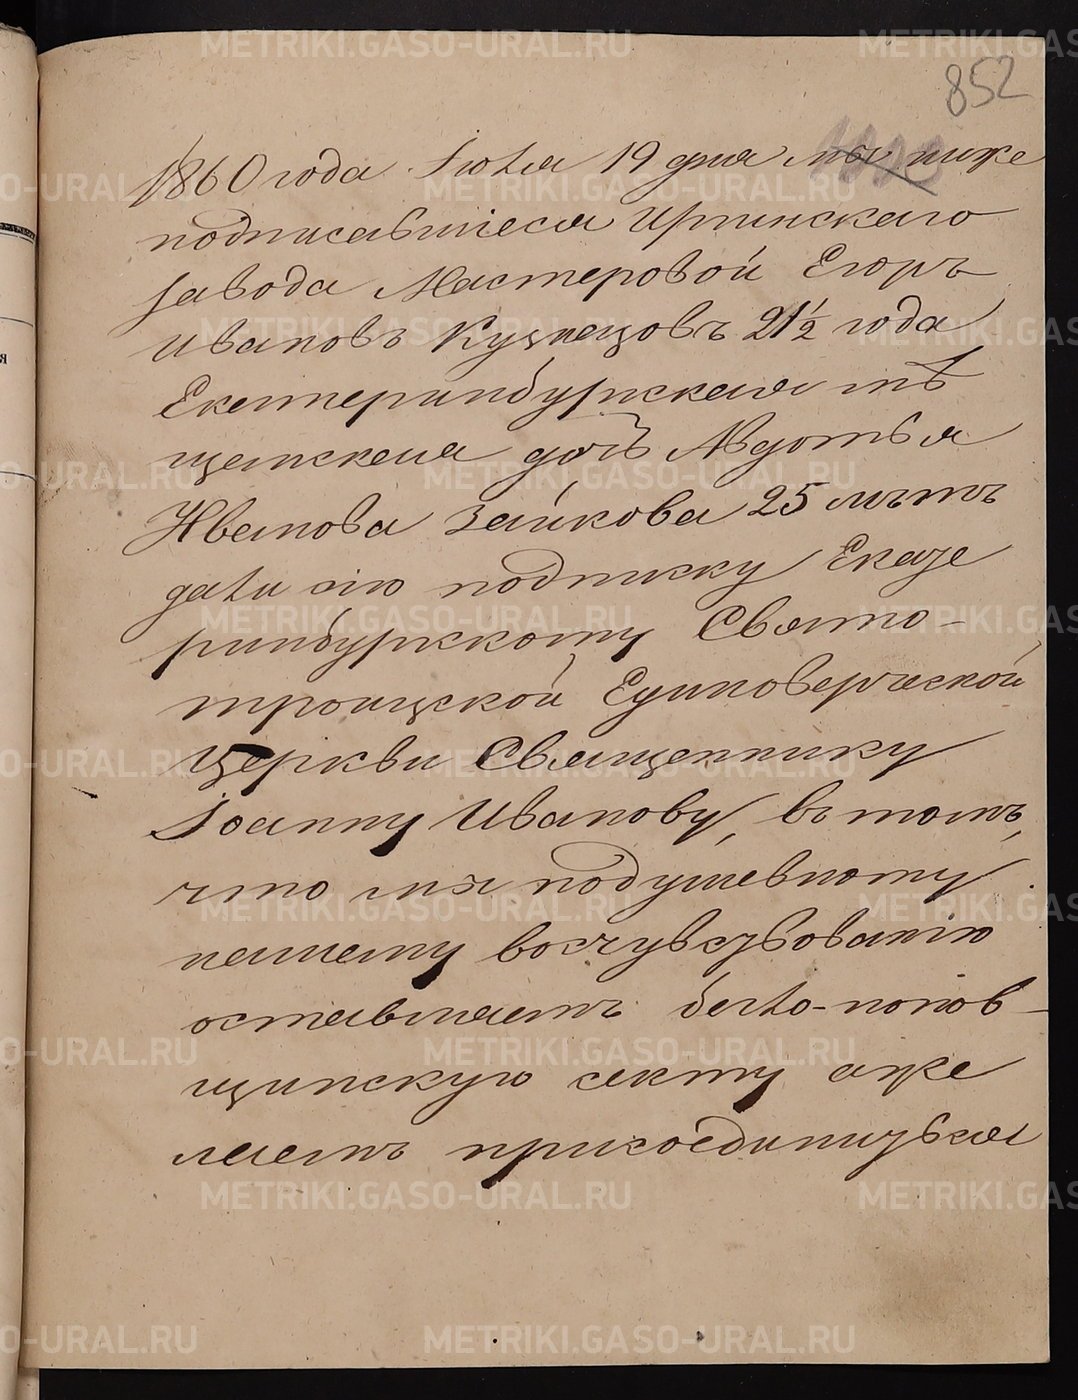 852
1860 года Іюля 19 дня мы ниже
подписавшіеся Иргинскаго
завода Мастеровой Егоръ
Ивановъ Кузнецовъ 21½ года
Екатеринбургская мѣ
щанская дочь Авдотья
Иванова Зайкова 25 лѣтъ
дали сію подписку Екате
ринбургскому Свято-
троицской Единоверческой
Церкви Священнику
Іоанну Иванову, въ томъ,
что мы подушевному
нашему восчувствованію
оставляемъ бегло-попов-
щинскую секту аже
лаемъ присоединиться
METRIKI.GASO-URAL.RU